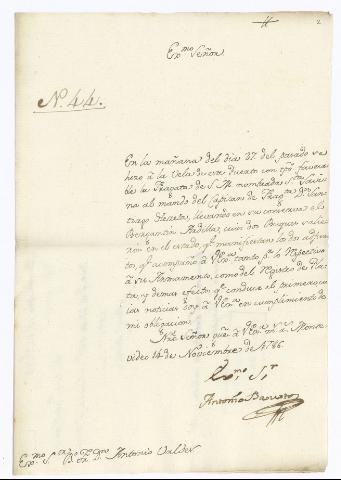 2
Ex.mo Señor
N.º 44.
En la mañana del dia 27 del pasado se
hizo à la Vela de este Puerto con tpō. favora-
ble la Fragata de S. M. nombrada S.ta
na al mando del Capitan de Frag.ta Dn.
llevando en su conserva el
Bergantin Ardilla; cuios dos Buques salie-
ron en el estado, qe. manifiestan los dos adjun-
tos, qe. acompaño à V.Ex.a tanto pr. lo respectivo
à su Armamento, como del Registro de Pla-
ta, y demas efectos qe. conduce el primero; cu-
ias noticias doy à V.Ex.a en cumplimiento de
mi obligacion.
Nro. Señor gue. à V.Ex.a ms. as. Monte-
video 14 de Noviembre de 1786.
Ex.mo S.r
Antonio
Ex.mo S.r Dn. Antonio Valdes.